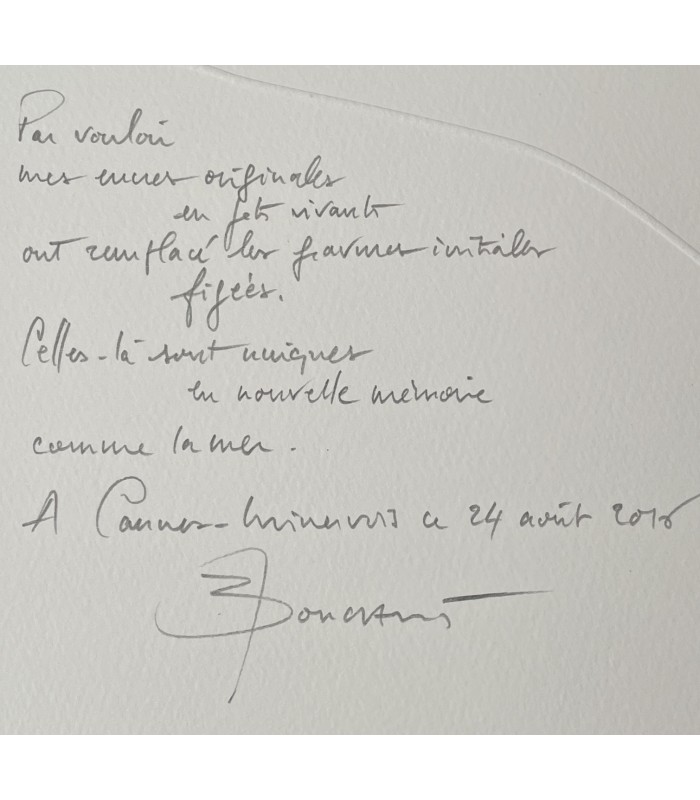 Par vouloir
mes encres originales
en jets vivants
ont remplacé les gravures initiales
figées.
Celles-là sont uniques
en nouvelle mémoire
comme la mer.
A Caunes-Minervois ce 24 août